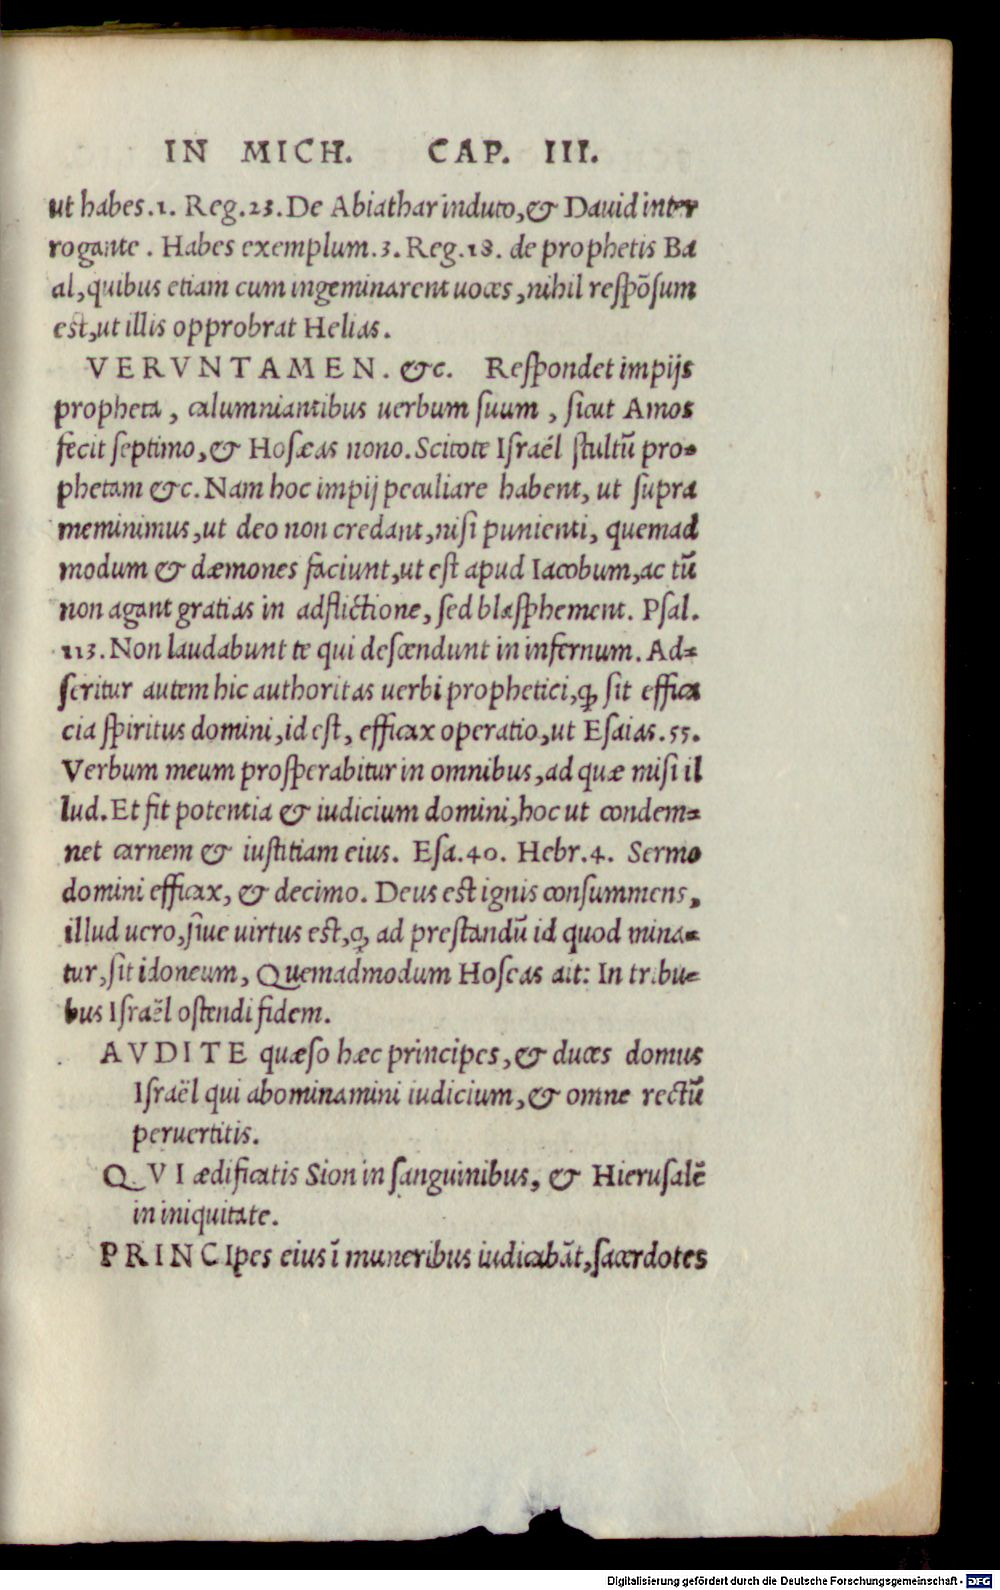 IN MICH. CAP. III.
ut habes.1. Reg.23.De Abiathar induto,& Dauid inter
rogante. Habes exemplum.3.Reg.18. de prophetis Ba
al,quibus etiam cum ingeminarent uoces,nihil respõsum
est,ut illis opprobrat Helias.
VERVNTAMEN. &c. Respondet impijs
propheta, calumniantibus uerbum suum, sicut Amos
fecit septimo,& Hosæas nono.Scitote Israél stultũ pro-
phetam &c.Nam hoc impij peculiare habent, ut supra
meminimus,ut deo non credant,nisi punienti, quemad
modum & dæmones faciunt,ut est apud Iacobum,ac tũ
non agant gratias in adflictione, sed blasphement. Psal.
113.Non laudabunt te qui descendunt in infernum. Ad-
seritur autem hic authoritas uerbi prophetici,ꝙ sit effica
cia spiritus domini,id est, efficax operatio,ut Esaias.55.
Verbum meum prosperabitur in omnibus,ad quæ misi il
lud.Et fit potentia & iudicium domini,hoc ut condem-
net carnem & iustitiam eius. Esa.40. Hebr.4. Sermo
domini efficax, & decimo. Deus est ignis consummens,
illud uero,siue uirtus est,ꝙ ad prestandũ id quod mina-
tur,sit idoneum, Quemadmodum Hoseas ait: In tribu-
bus Israël ostendi fidem.
AVDITE quæso hæc principes,& duces domus
Israël qui abominamini iudicium,& omne rectũ
peruertitis.
QVI ædificatis Sion in sanguinibus, & Hierusalẽ
in iniquitate.
PRINCIpes eius ĩ muneribus iudicabãt,sacerdotes
Digitalisierung gefördert durch die Deutsche Forschungsgemeinschaft - DFG